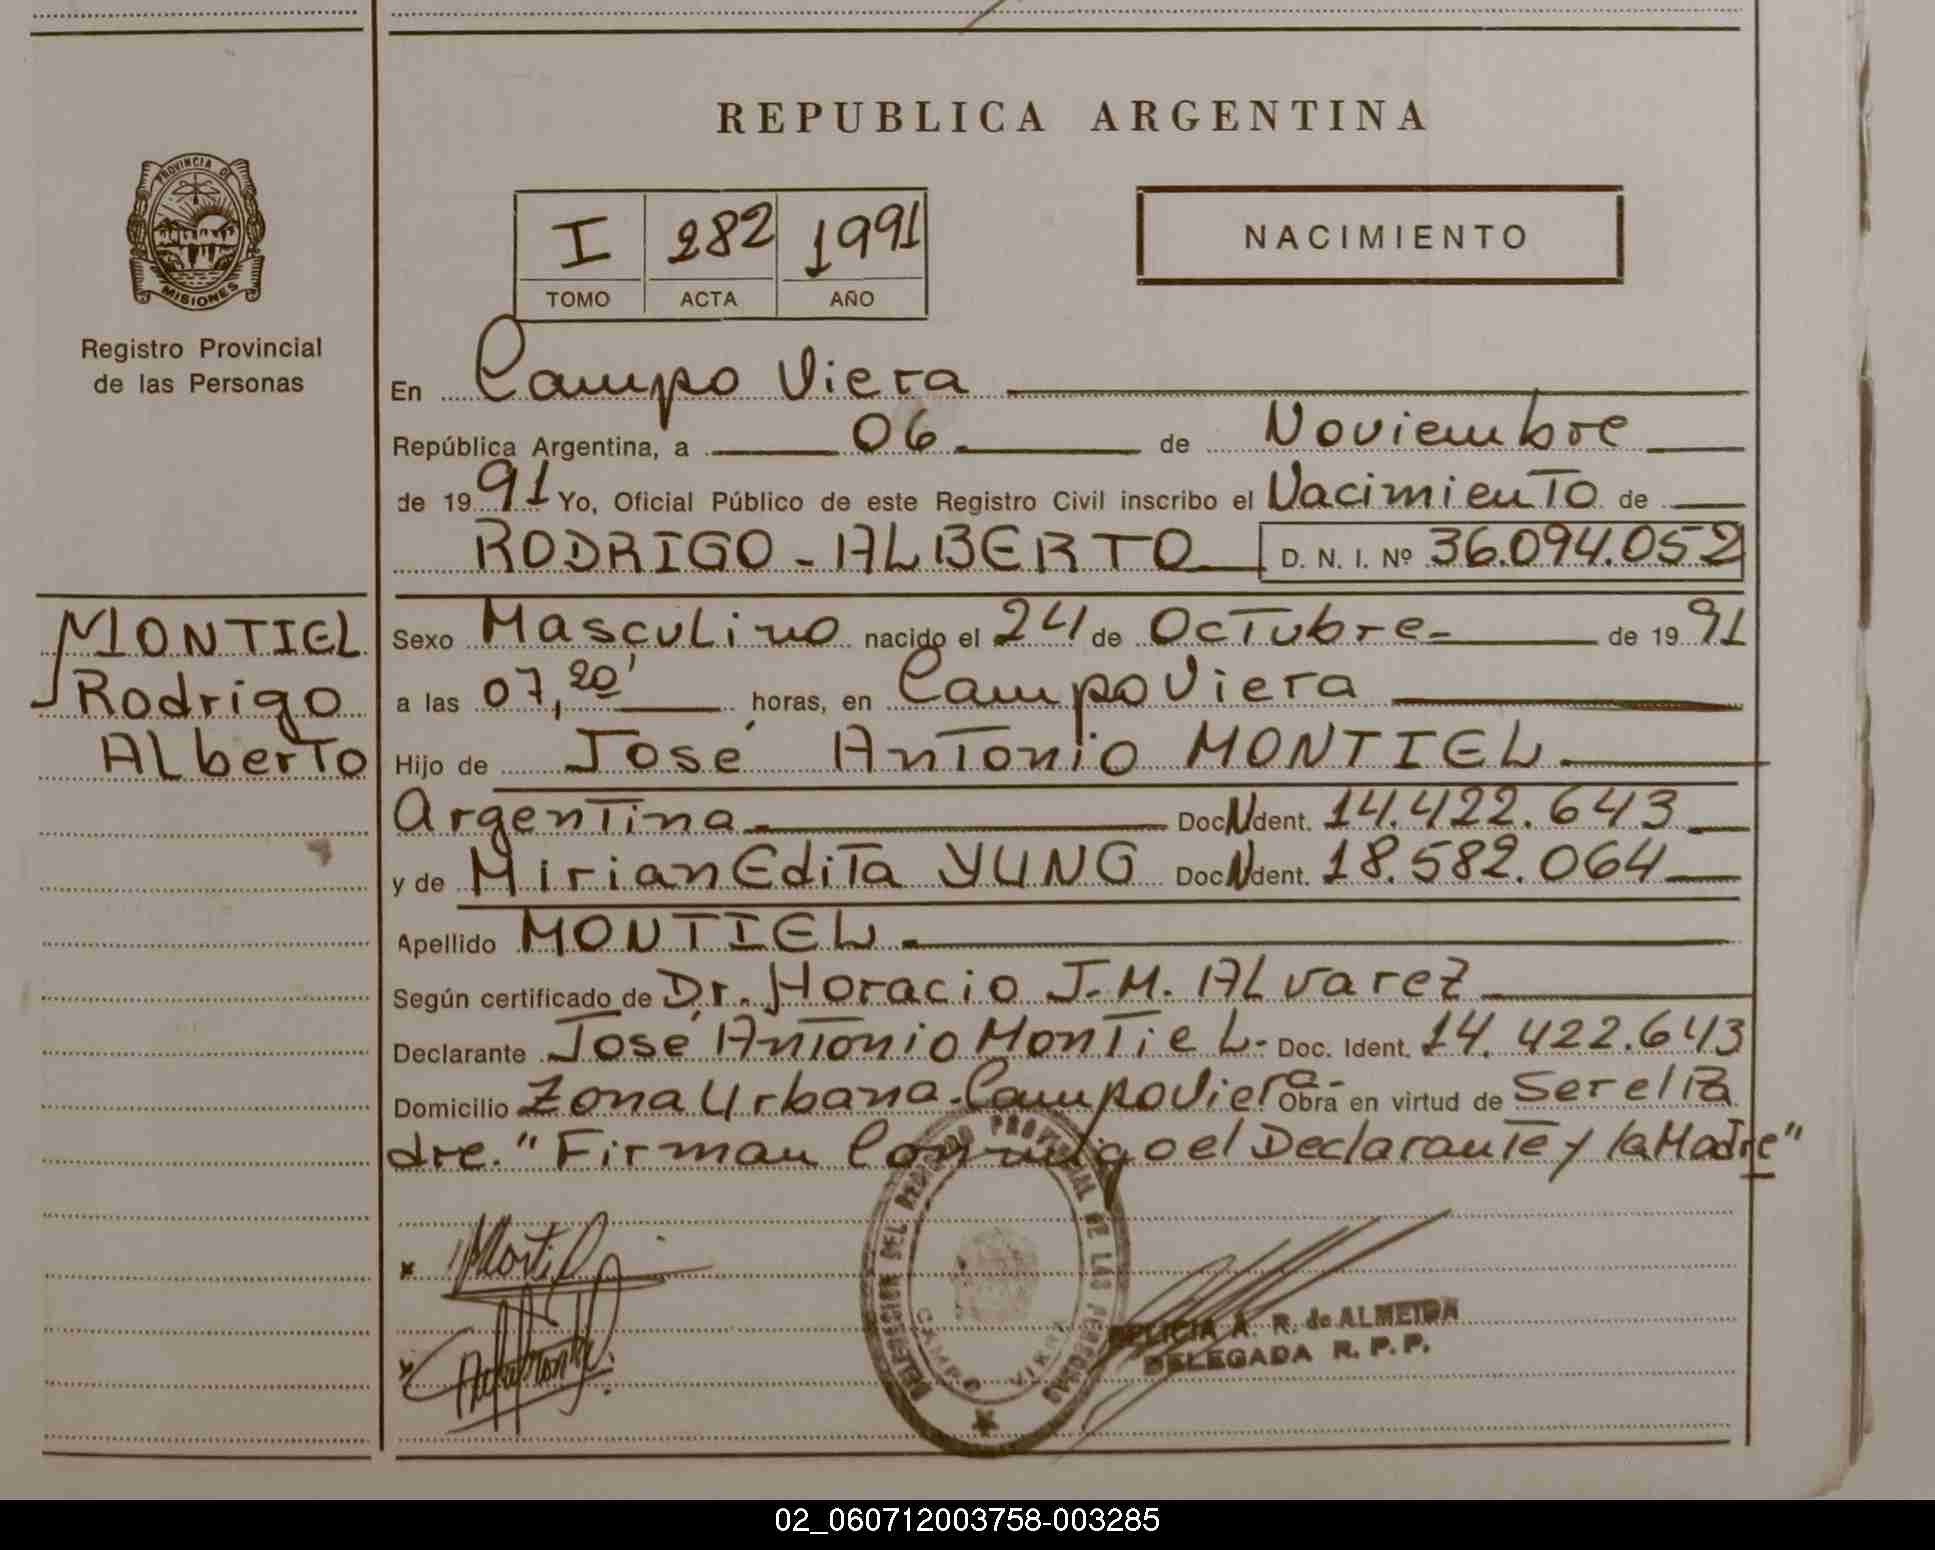 REPUBLICA ARGENTINA
PROVINCIA DE
MISIONES
Registro Provincial
de las Personas
I 282 1991
TOMO ACTA AÑO
NACIMIENTO
En Campo Viera
República Argentina, a 06 de Noviembre
de 1991 Yo, Oficial Público de este Registro Civil inscribo el Nacimiento de
RODRIGO - ALBERTO D. N. I. Nº 36.094.052
MONTIEL
Rodrigo
Alberto
Sexo Masculino nacido el 24 de Octubre de 1991
a las 07,20' horas, en Campo Viera
Hijo de José Antonio MONTIEL
Argentina Doc N dent. 14.422.643
y de Mirian Edita YUNG Doc N dent. 18.582.064
Apellido MONTIEL
Según certificado de Dr. Horacio J.M. Alvarez
Declarante José Antonio Montiel - Doc. Ident. 14.422.643
Domicilio Zona Urbana - Campo Viera - Obra en virtud de Ser el Pa
dre. "Firman Conmigo el Declarante y la Madre"
Montiel
DELEGACION DEL REGISTRO PROVINCIAL DE LAS PERSONAS
CAMPO VIERA
A. R. de ALMEIDA
DELEGADA R. P. P.
02_060712003758-003285